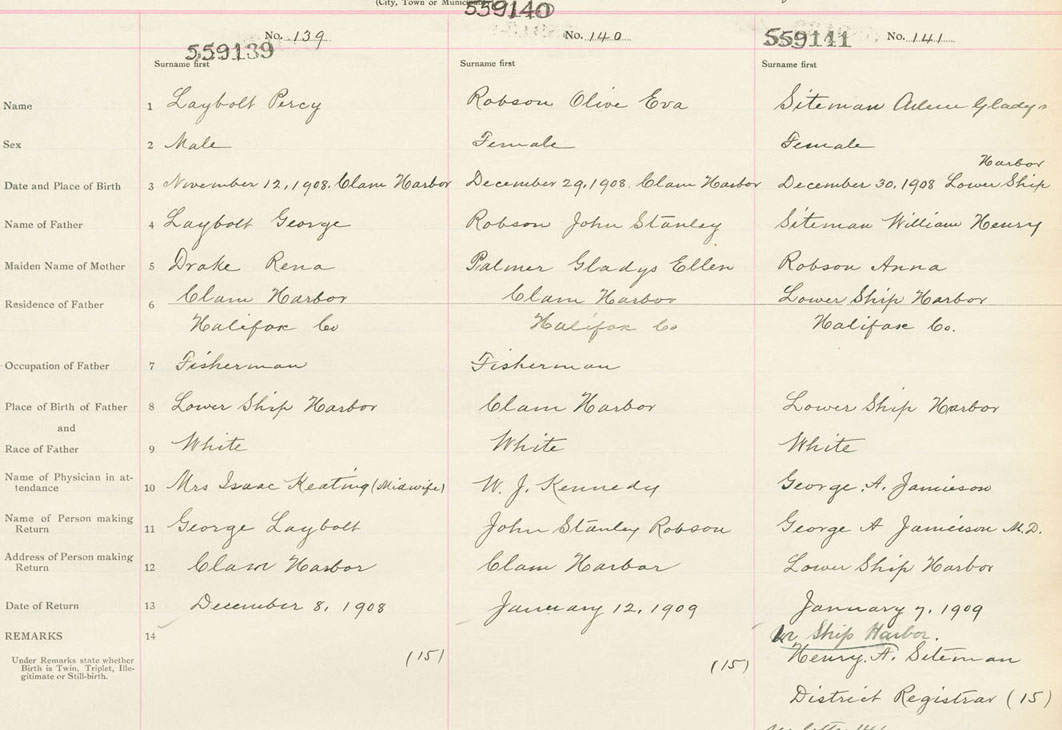 (City, Town or Munici
559140
No. 139 No. 140 559141 No. 141
559139
Surname first Surname first Surname first
Name 1 Laybolt Percy Robson Olive Eva Siteman Gladys
Sex 2 Male Female Female
Harbor
Date and Place of Birth 3 November 12, 1908. Clam Harbor December 29, 1908. Clam Harbor December 30, 1908 Lower Ship
Name of Father 4 Laybolt George Robson John Stanley Siteman William Henry
Maiden Name of Mother 5 Drake Rena Palmer Gladys Ellen Robson Anna
Residence of Father 6 Clam Harbor Clam Harbor Lower Ship Harbor
Halifax Co Halifax Co Halifax Co.
Occupation of Father 7 Fisherman Fisherman
Place of Birth of Father 8 Lower Ship Harbor Clam Harbor Lower Ship Harbor
and
Race of Father 9 White White White
Name of Physician in at-
tendance 10 Mrs Isaac Keating (Midwife) W. J. Kennedy George. A. Jamieson
Name of Person making
Return 11 George Laybolt John Stanley Robson George A Jamieison M.D.
Address of Person making
Return 12 Clam Harbor Clam Harbor Lower Ship Harbor
Date of Return 13 December 8, 1908 January 12, 1909 January 7, 1909
REMARKS 14 Lr. Ship Harbor.
Under Remarks state whether
Birth is Twin, Triplet, Ille-
gitimate or Still-birth.
(15) (15) Henry. A. Siteman
District Registrar (15)